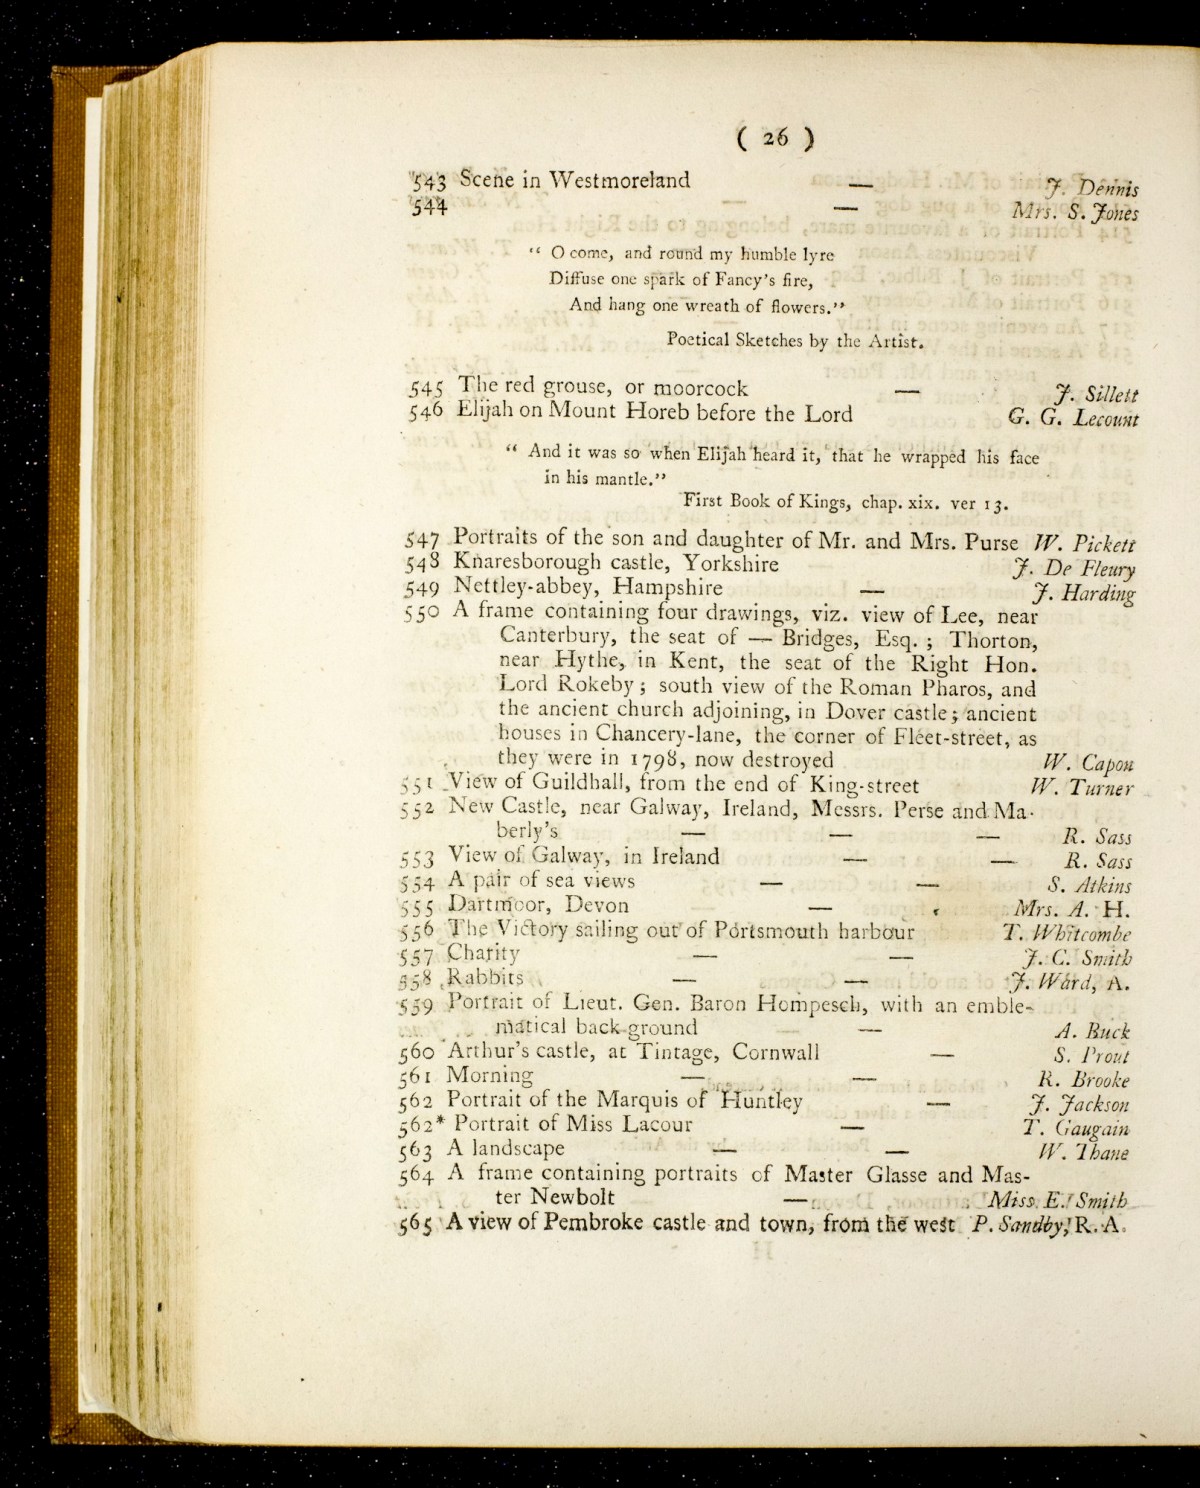 ( 26 )
543 Scene in Westmoreland — J. Dennis
544 — Mrs. S. Jones
" O come, and round my humble lyre
Diffuse one spark of Fancy's fire,
And hang one wreath of flowers."
Poetical Sketches by the Artist.
545 The red grouse, or moorcock — J. Sillett
546 Elijah on Mount Horeb before the Lord G. G. Lecount
" And it was so when Elijah heard it, that he wrapped his face
in his mantle."
First Book of Kings, chap. xix. ver 13.
547 Portraits of the son and daughter of Mr. and Mrs. Purse W. Pickett
548 Knaresborough castle, Yorkshire J. De Fleury
549 Nettley-abbey, Hampshire — J. Harding
550 A frame containing four drawings, viz. view of Lee, near
Canterbury, the seat of — Bridges, Esq. ; Thorton,
near Hythe, in Kent, the seat of the Right Hon.
Lord Rokeby ; south view of the Roman Pharos, and
the ancient church adjoining, in Dover castle ; ancient
houses in Chancery-lane, the corner of Fleet-street, as
they were in 1798, now destroyed W. Capon
551 View of Guildhall, from the end of King-street W. Turner
552 New Castle, near Galway, Ireland, Messrs. Perse and Ma-
berly's — — — R. Sass
553 View of Galway, in Ireland — — R. Sass
554 A pair of sea views — — S. Atkins
555 Dartmoor, Devon — Mrs. A. H.
556 The Victory sailing out of Portsmouth harbour T. Whitcombe
557 Charity — — J. C. Smith
558 Rabbits — — J. Ward, A.
559 Portrait of Lieut. Gen. Baron Hompesch, with an emble-
matical back ground — A. Buck
560 Arthur's castle, at Tintage, Cornwall — S. Prout
561 Morning — — R. Brooke
562 Portrait of the Marquis of Huntley — J. Jackson
562* Portrait of Miss Lacour — T. Gaugain
563 A landscape — — W. Thane
564 A frame containing portraits of Master Glasse and Mas-
ter Newbolt — Miss E. Smith
565 A view of Pembroke castle and town, from the west P. Sandby, R. A.